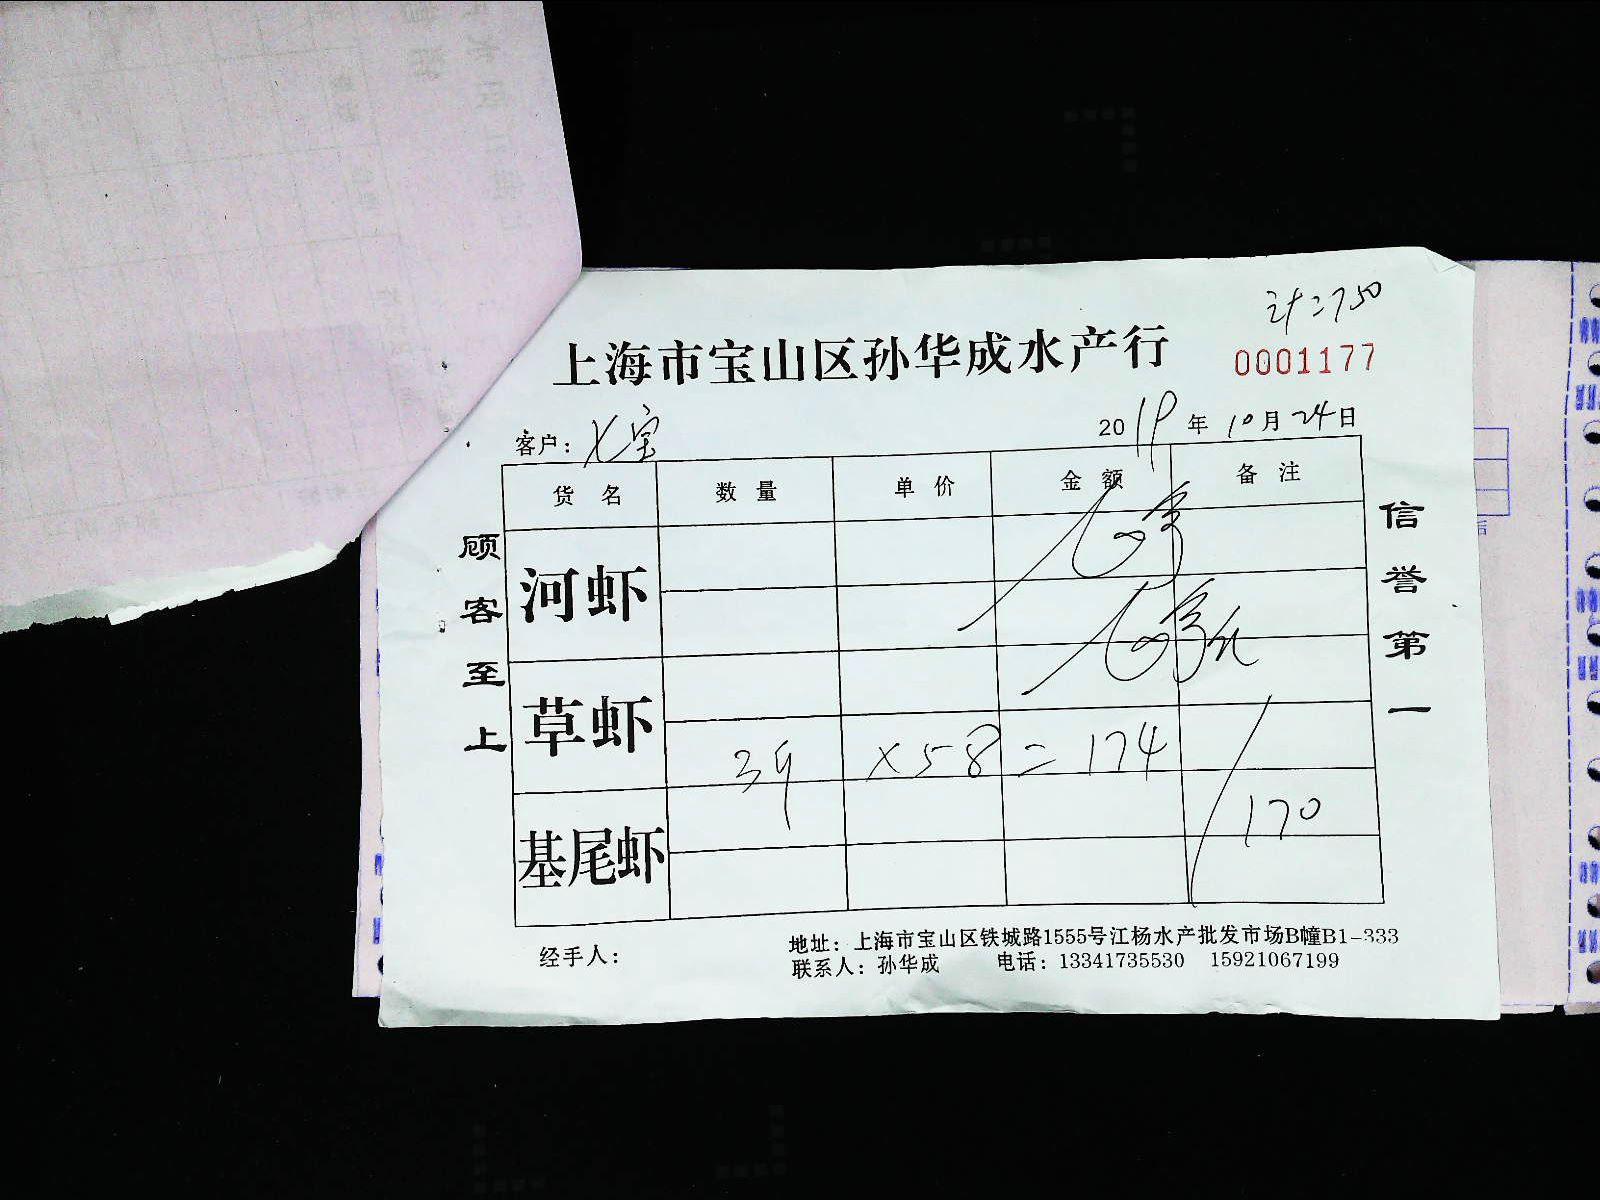 计=750
上海市宝山区孙华成水产行
0001177
客户：七宝
2019年10月24日
货名 数量 单价 金额 备注
河虾
草虾
3斤 ×58=174
170
基尾虾
顾客至上
信誉第一
经手人：
地址：上海市宝山区铁城路1555号江杨水产批发市场B幢B1-333
联系人：孙华成 电话：13341735530 15921067199